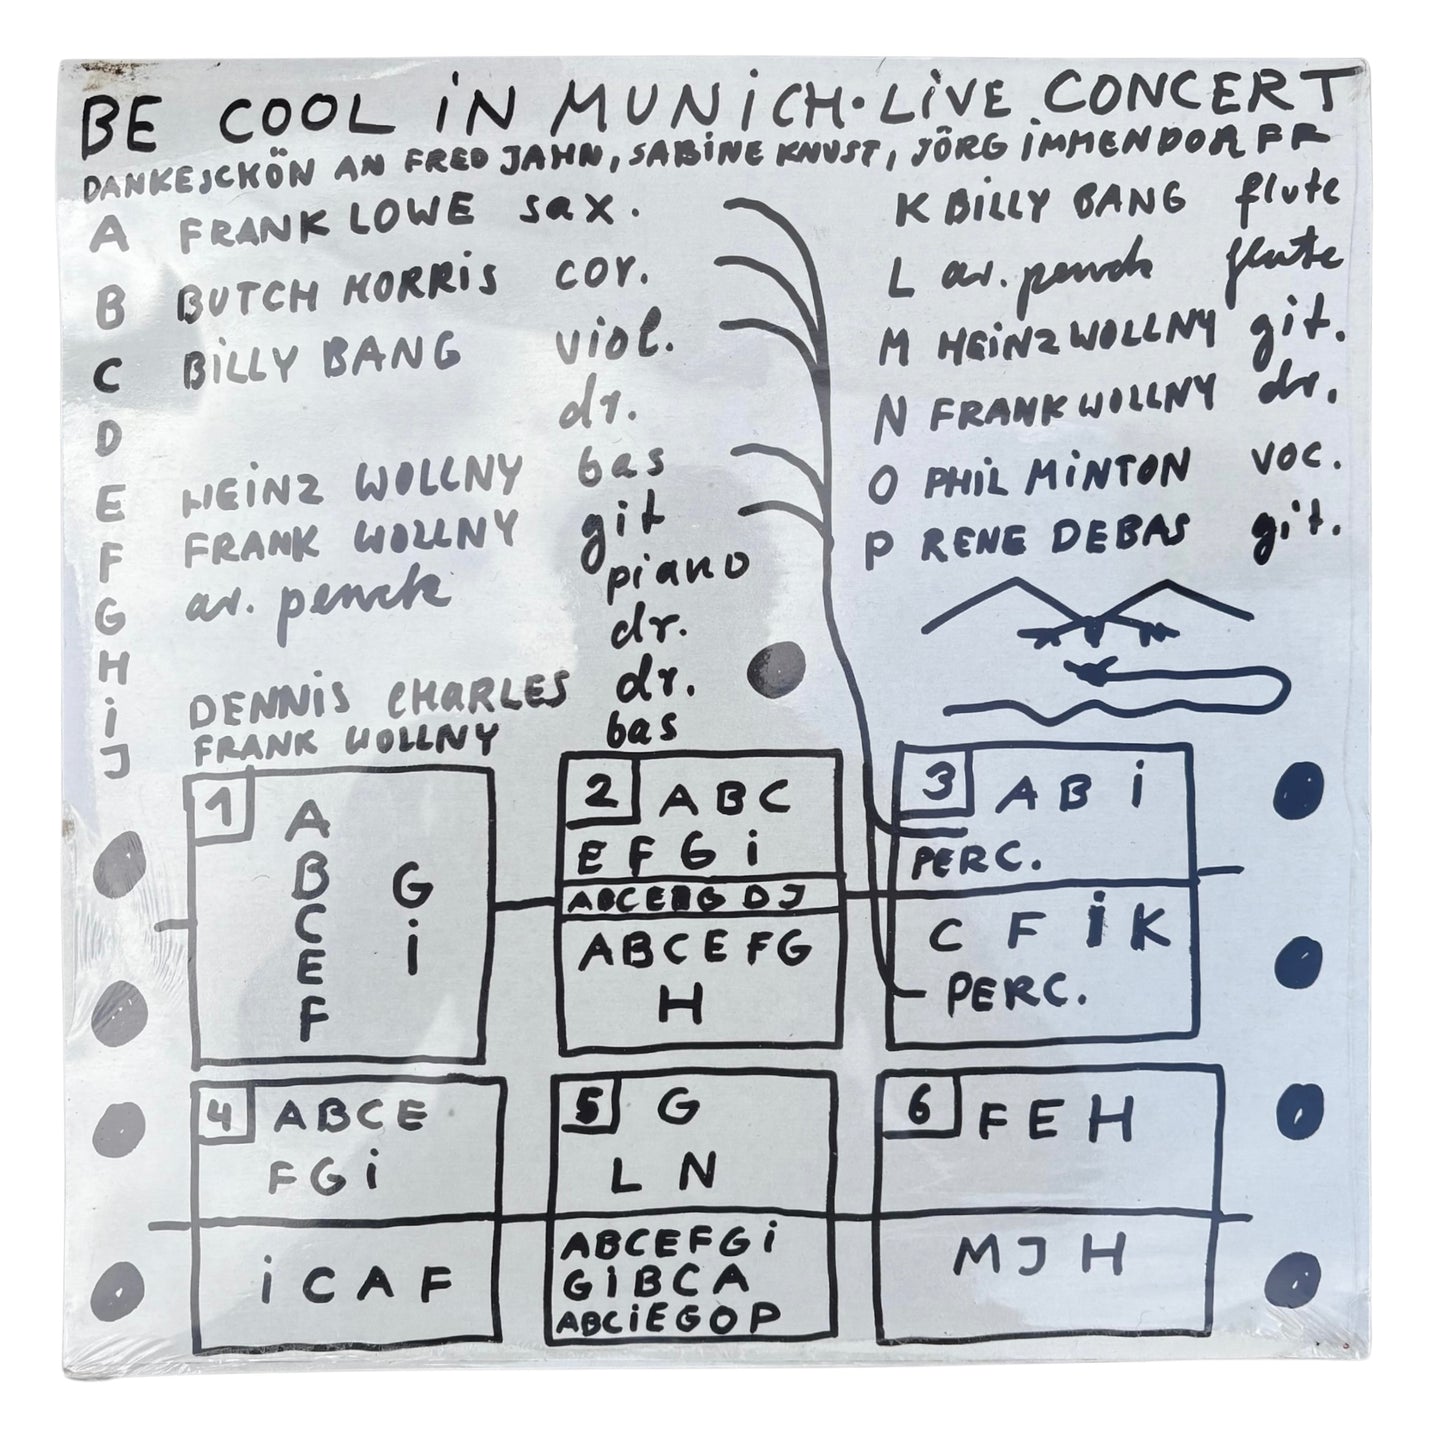 BE COOL iN MUNiCH·LiVE CONCERT
DANKESCHÖN AN FRED JAHN, SABiNE KNUST, JÖRG iMMENDORFF
A FRANK LOWE sax.
B BUTCH MORRiS cor.
C BiLLY BANG viol.
D dr.
E HEiNZ WOLLNY bas
F FRANK WOLLNY git
G ar. penck piano
H dr.
i DENNiS CHARLES dr.
J FRANK WOLLNY bas
K BiLLY BANG flute
L ar. penck flute
M HEiNZ WOLLNY git.
N FRANK WOLLNY dr.
O PHiL MiNTON voc.
P RENE DEBAS git.
1
A
B
C
E
F
G
i
2 ABC
EFGi
DJ
ABCEFG
H
3 ABi
PERC.
CFiK
PERC.
4 ABCE
FGi
iCAF
5 G
LN
ABCEFGi
GiBCA
ABCiEGOP
6 FEH
MJH